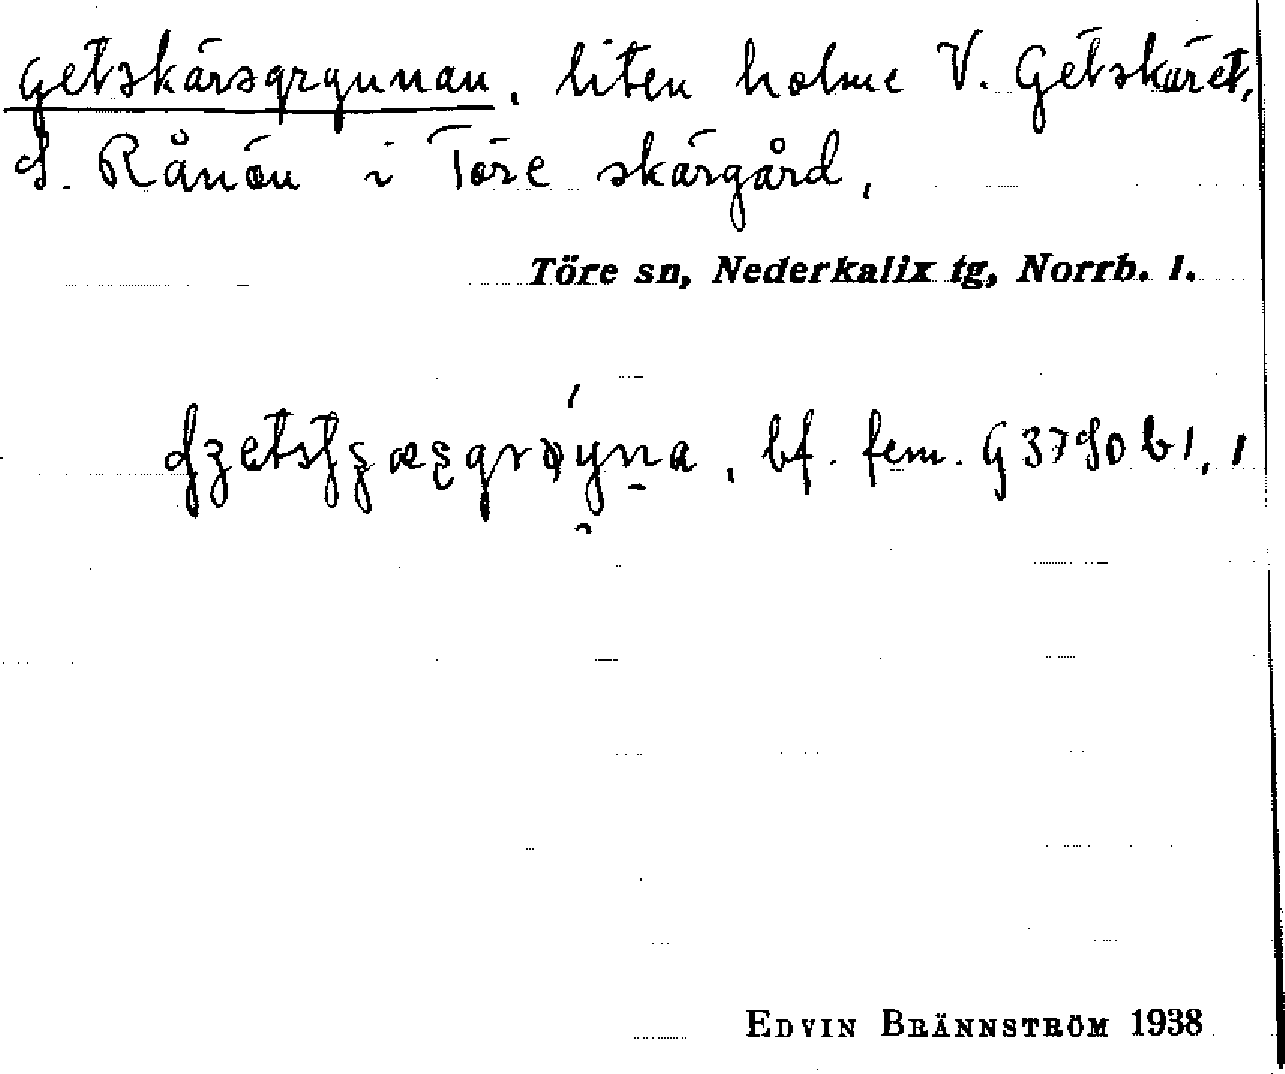 Getskärsgrynnan, liten holme V. Getskäret,
S. Rånön i Töre skärgård,
Töre sn, Nederkalix tg, Norrb. l.
bf. fem.
EDVIN BRÄNNSTRÖM 1938